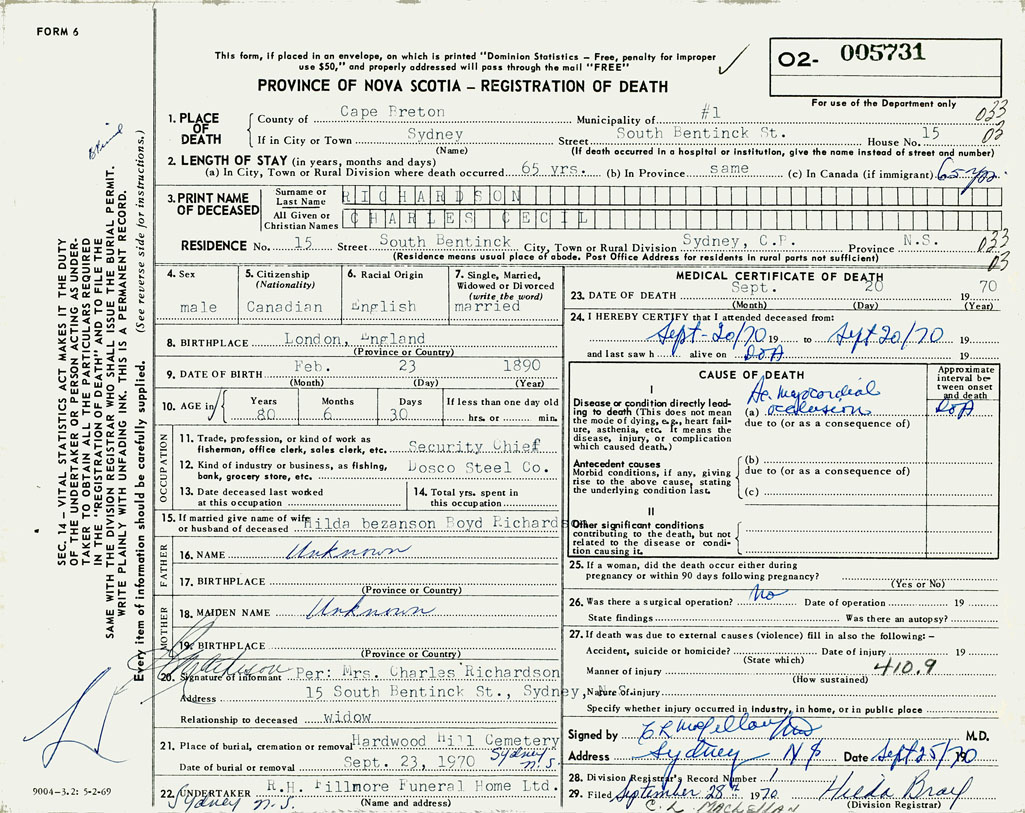 FORM 6
This form, if placed in an envelope, on which is printed "Dominion Statistics – Free, penalty for Improper
use $50," and properly addressed will pass through the mail "FREE"
O2- 005731
For use of the Department only
PROVINCE OF NOVA SCOTIA – REGISTRATION OF DEATH
SEC. 14 – VITAL STATISTICS ACT MAKES IT THE DUTY
OF THE UNDERTAKER OR PERSON ACTING AS UNDER-
TAKER TO OBTAIN ALL THE PARTICULARS REQUIRED
IN THE "REGISTRATION OF DEATH" AND TO FILE THE
SAME WITH THE DIVISION REGISTRAR WHO SHALL ISSUE THE BURIAL PERMIT.
WRITE PLAINLY WITH UNFADING INK. THIS IS A PERMANENT RECORD.
Every item of information should be carefully supplied. (See reverse side for instructions.)
1. PLACE OF DEATH
County of Cape Breton Municipality of #1 033
If in City or Town Sydney Street South Bentinck St. House No. 15 03
(Name) (If death occurred in a hospital or institution, give the name instead of street and number)
2. LENGTH OF STAY (in years, months and days)
(a) In City, Town or Rural Division where death occurred 65 yrs. (b) In Province same (c) In Canada (if immigrant) 65 yrs.
3. PRINT NAME OF DECEASED
Surname or Last Name RICHARDSON
All Given or Christian Names CHARLES CECIL
RESIDENCE No. 15 Street South Bentinck City, Town or Rural Division Sydney, C.B. Province N.S. 033
(Residence means usual place of abode. Post Office Address for residents in rural parts not sufficient) 03
4. Sex male
5. Citizenship (Nationality) Canadian
6. Racial Origin English
7. Single, Married, Widowed or Divorced (write the word) married
8. BIRTHPLACE London, England
(Province or Country)
9. DATE OF BIRTH Feb. 23 1890
(Month) (Day) (Year)
10. AGE in Years 80 Months 6 Days 30 If less than one day old hrs. or min.
OCCUPATION
11. Trade, profession, or kind of work as fisherman, office clerk, sales clerk, etc. Security Chief
12. Kind of industry or business, as fishing, bank, grocery store, etc. Dosco Steel Co.
13. Date deceased last worked at this occupation
14. Total yrs. spent in this occupation
15. If married give name of wife or husband of deceased Hilda bezanson Boyd Richardson
FATHER
16. NAME Unknown
17. BIRTHPLACE
(Province or Country)
MOTHER
18. MAIDEN NAME Unknown
19. BIRTHPLACE
(Province or Country)
20. Signature of informant Per: Mrs. Charles Richardson
Address 15 South Bentinck St., Sydney, N.S.
Relationship to deceased widow
21. Place of burial, cremation or removal Hardwood Hill Cemetery
Sydney N.S.
Date of burial or removal Sept. 23, 1970
22. UNDERTAKER R.H. Fillmore Funeral Home Ltd.
Sydney N.S. (Name and address)
9004-3.2: 5-2-69
MEDICAL CERTIFICATE OF DEATH
23. DATE OF DEATH Sept. 20 1970
(Month) (Day) (Year)
24. I HEREBY CERTIFY that I attended deceased from:
Sept-20/70 19 to Sept 20/70
and last saw h alive on DOA 19
CAUSE OF DEATH
Approximate interval between onset and death
I
Disease or condition directly leading to death (This does not mean the mode of dying, e.g., heart failure, asthenia, etc. It means the disease, injury, or complication which caused death.)
(a) Ac. myocardial occlusion DOA
due to (or as a consequence of)
Antecedent causes
Morbid conditions, if any, giving rise to the above cause, stating the underlying condition last.
(b)
due to (or as a consequence of)
(c)
II
Other significant conditions
contributing to the death, but not related to the disease or condition causing it.
25. If a woman, did the death occur either during
pregnancy or within 90 days following pregnancy?
(Yes or No)
26. Was there a surgical operation? No Date of operation 19
State findings Was there an autopsy?
27. If death was due to external causes (violence) fill in also the following: –
Accident, suicide or homicide? Date of injury 19
(State which)
Manner of injury 410.9
(How sustained)
Nature of injury
Specify whether injury occurred in industry, in home, or in public place
Signed by M.D.
Address Sydney NS Date Sept 25/1970
28. Division Registrar's Record Number 1
29. Filed September 28th 1970 Hilda Bray
(Division Registrar)
C. L. MacLellan